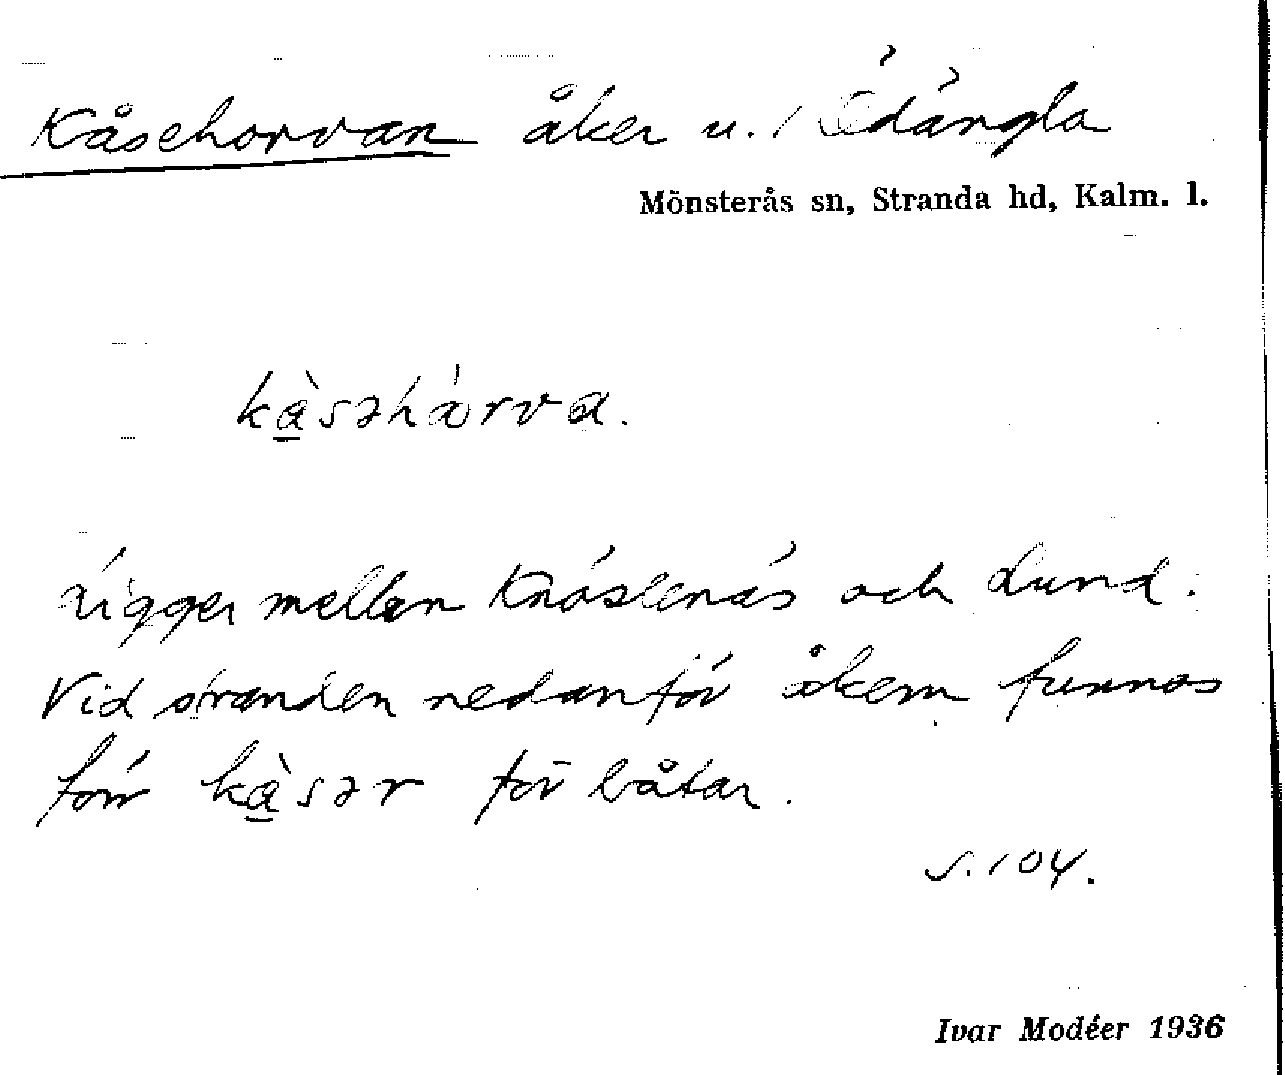 Kåsehorvan åker u. 1 Ödängla
Mönsterås sn, Stranda hd, Kalm. l.
kà̱səhɷ́rva.
Ligger mellan Knöslenäs och Lund.
Vid stranden nedanför åkern funnos
förr kà̱sər för båtar.
S. 104.
Ivar Modéer 1936